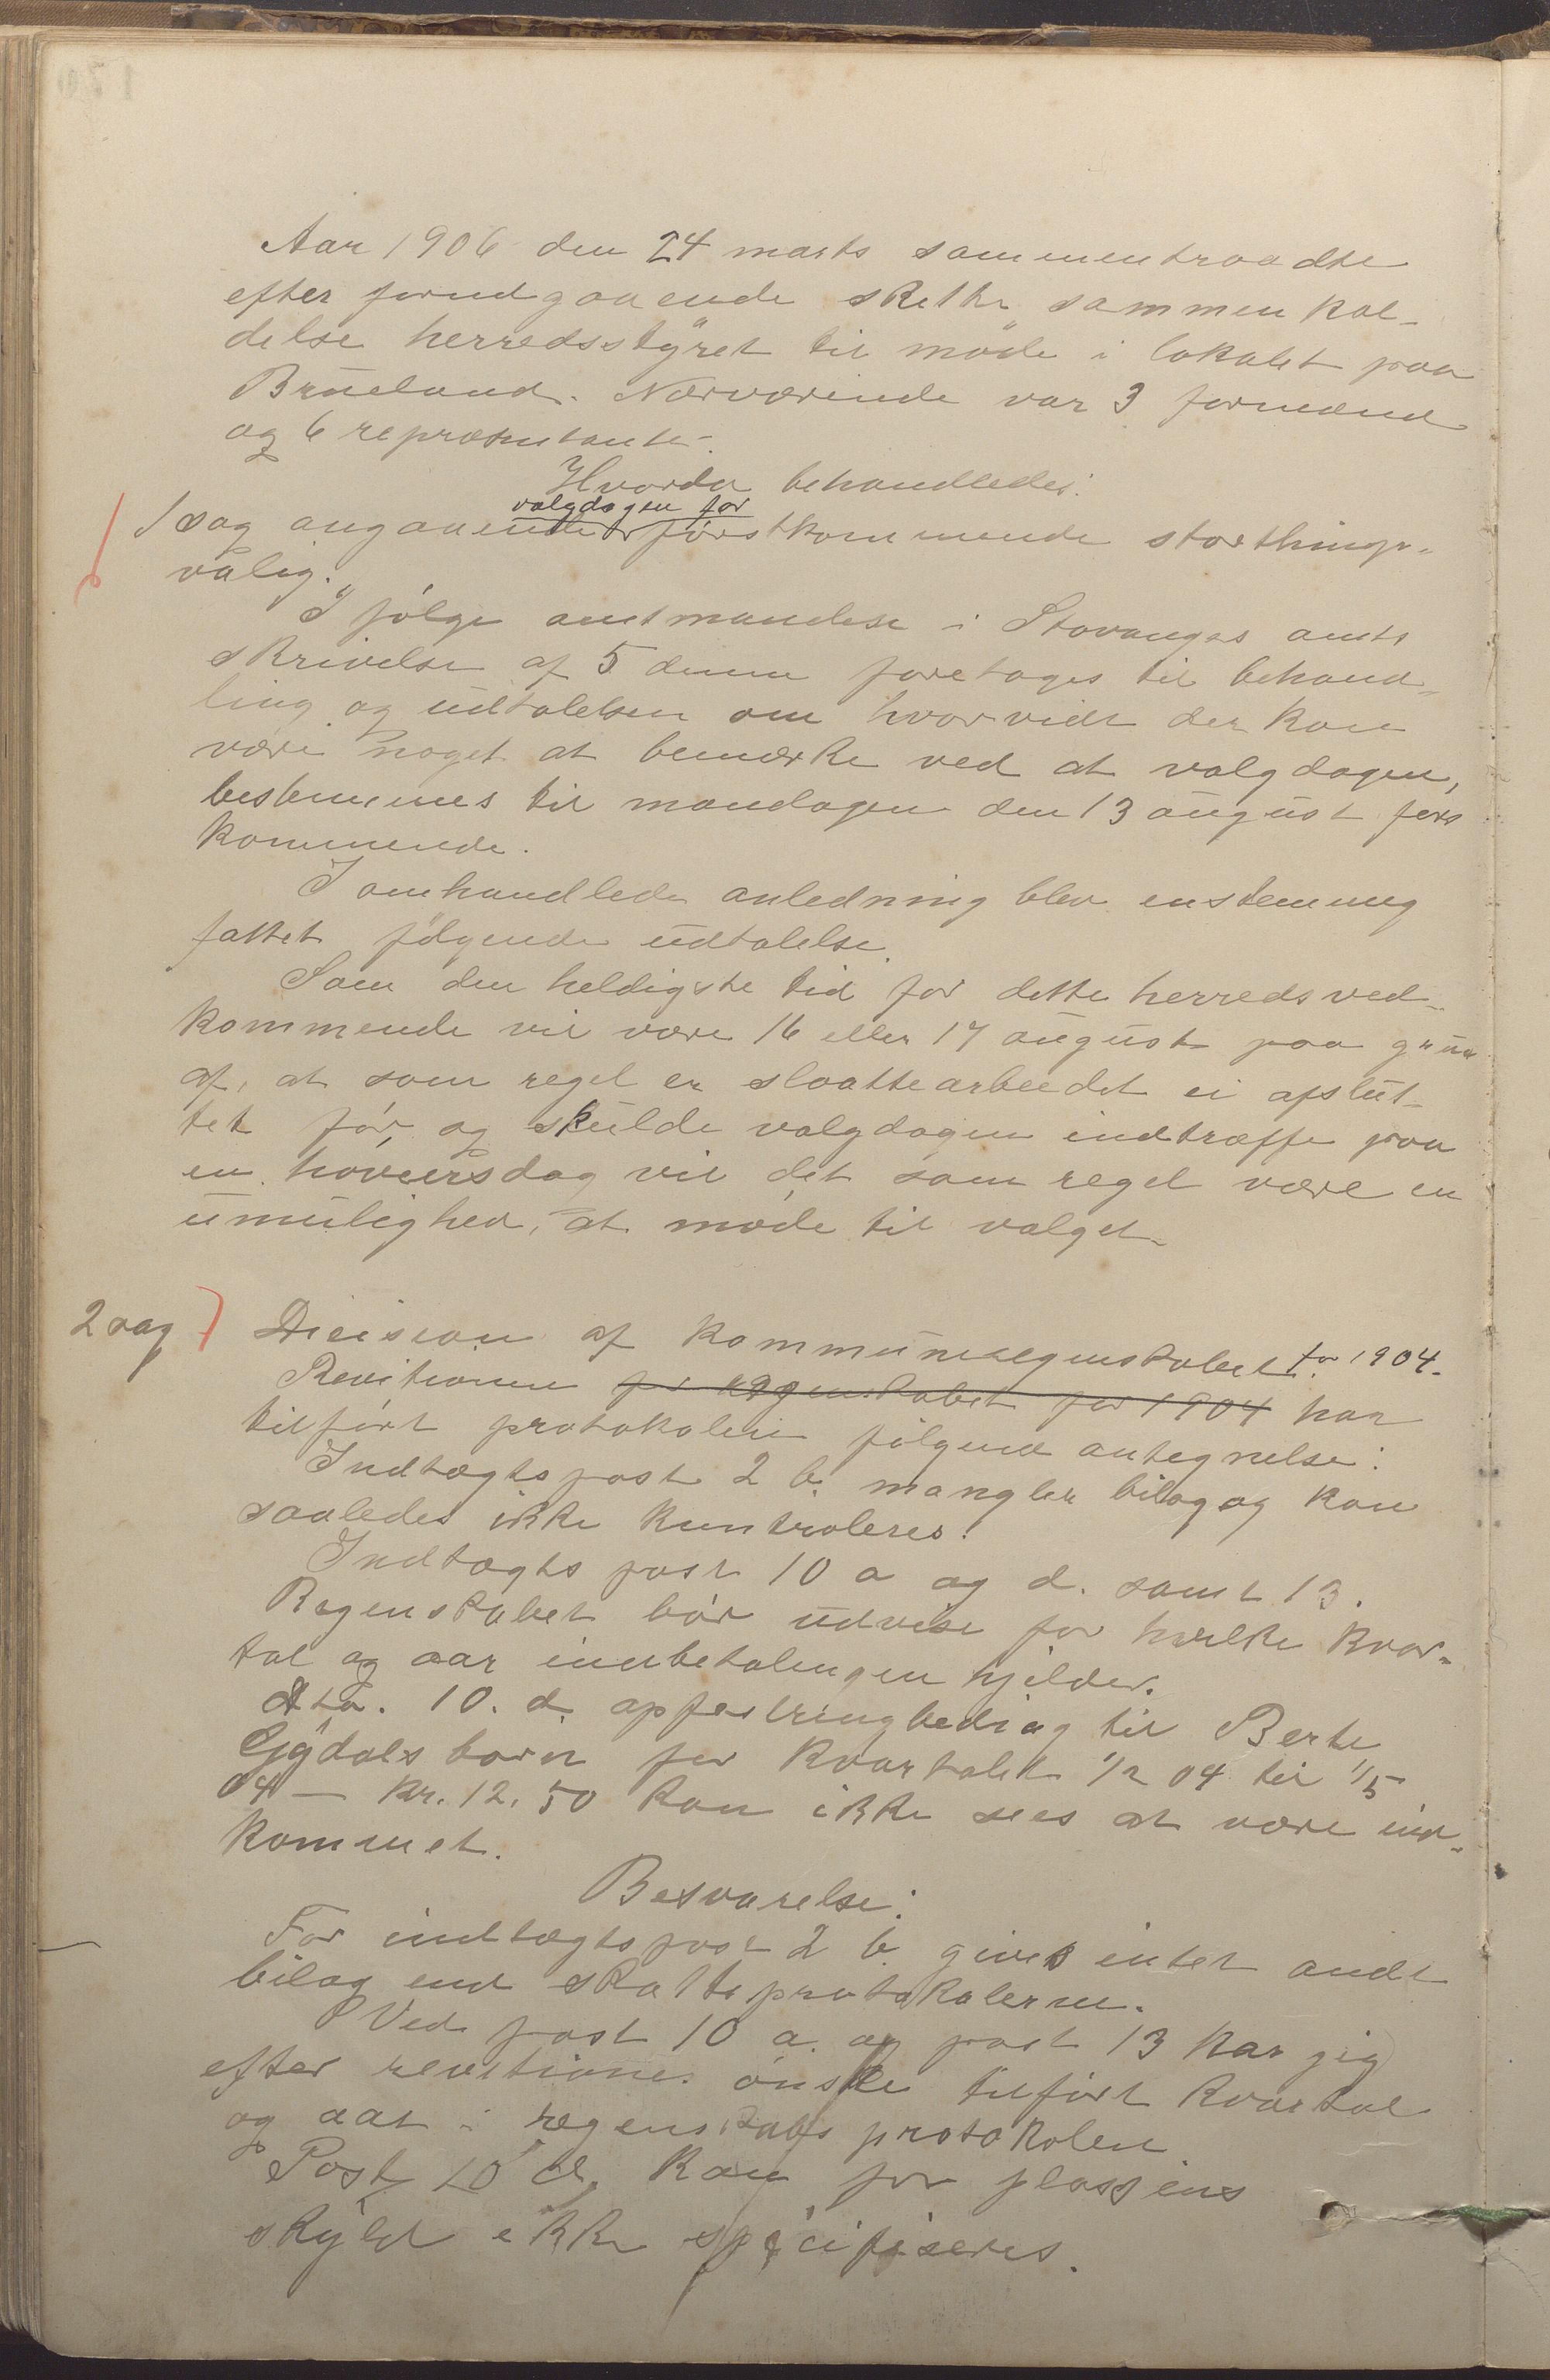 Aar 1906 den 24 marts sammentraadte
efter forudgaaende skethe sammenkal-
delse herredsstyret til møde i lokalet paa
Brueland. Nærværende var 3 formænd
og 6 repræsentante.
Hvorda behandledes:
valgdagen for
1 sag angaaende førstkommende storthings-
valg.
I følge amtmandese i Stavanger amts
skrivelse af 5 denne foretages til behand-
ling og udtalelsen om hvorvidt der kan
være noget at bemærke ved at valgdagen,
bestemmes til mandagen den 13 august førs
kommende.
I omhandlede anledning blev enstemmig
fattet følgende udtalelse.
Som den heldigste tid for dette herredsved-
kommende vil være 16 eller 17 august paa grun
af, at som regel er slaattearbeedet ei afslut-
tet før, og skulde valgdagen indtræffe paa
en hoveersdag vil det som regel være en
umulighed, at møde til valget.
2 sag Dicision af kommuneregnskabet for 1904.
Revitionen for regnskabet for 1904 har
tilført protokolen følgend antegnelse:
Indtægtspost 2 b. mangler bilag og kan
saaledes ikke kuntroleres.
Indtægts post 10 a og d. samt 13.
Regnskabet bør udvise for hvilke kvar-
tal og aar innbetalingen gjelder.
Dto. 10. d. opfostringbedrag til Berte
Gydals barn for kvartalet 1/2 04 til 1/5
04 — kr. 12,50 kan ikke sees at være ind-
kommet.
Besvarelse:
For indtægtspost 2 b. gives intet andt
bilag end skatteprotokolerne.
Ved post 10 a. og post 13 har jeg
efter revitiones ønske tilført kvartal
og aar i regenskabs protokolen
Post 10 d. kan for plassens
skyld ikke specifiseres.